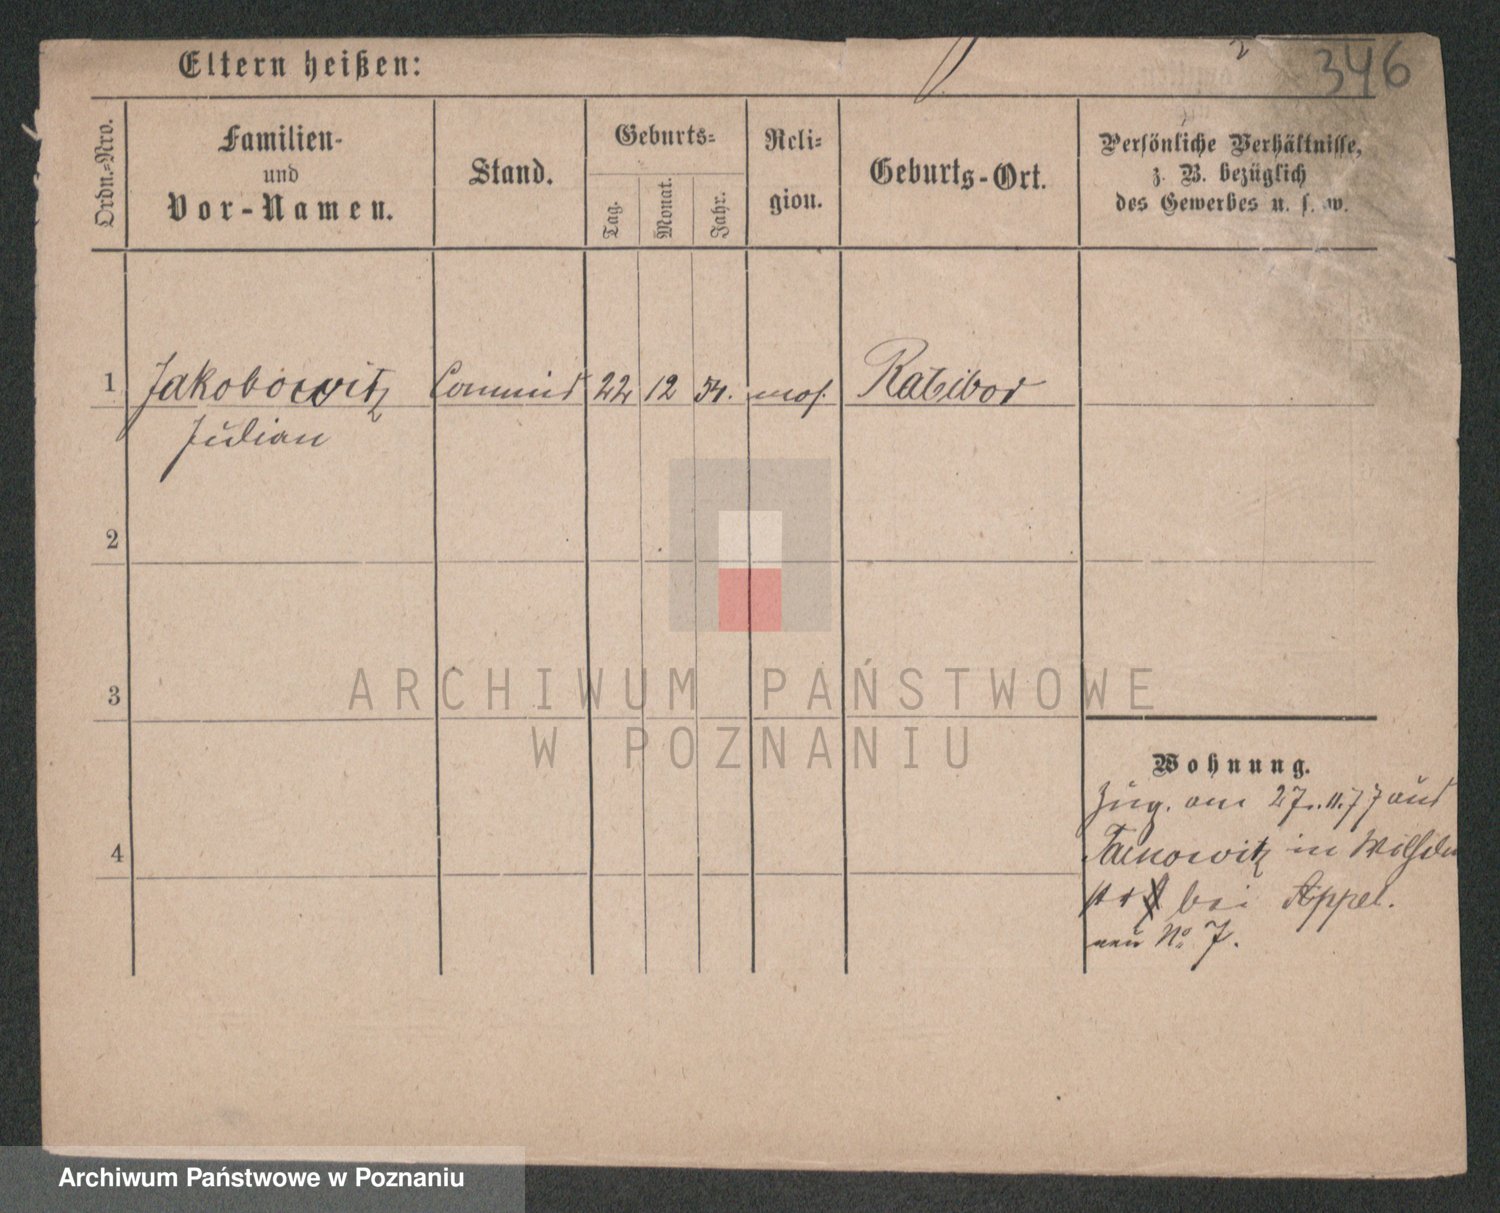 346
Eltern heißen:
Ordn.-Nro.
Familien-
und
Vor-Namen.
Stand.
Geburts-
Tag.
Monat.
Jahr.
Reli-
gion.
Geburts-Ort.
Persönliche Verhältnisse,
z. B. bezüglich
des Gewerbes u. s. w.
1 Jakobowitz Commis 22 12 54. mos. Ratibor
Julian
2
3
4
Wohnung.
Zug. am 27.11.77 aus
Tarnowitz in Wilhelm
bei Appel.
neu No 7.
ARCHIWUM PAŃSTWOWE
W POZNANIU
Archiwum Państwowe w Poznaniu